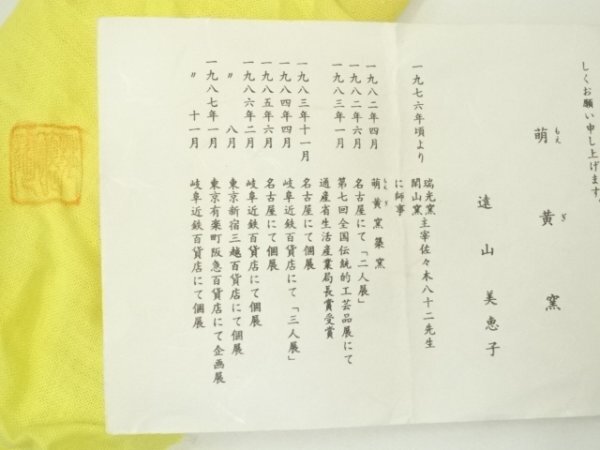 しくお願い申し上げます。
萌黄窯
もえ　ぎ
遠山美恵子
一九七六年頃より　瑞光窯主宰佐々木八十二先生
開山窯
に師事
一九八二年四月　萌黄窯築窯
もえ　ぎ
一九八二年六月　名古屋にて「二人展」
一九八三年一月　第七回全国伝統的工芸品展にて
通産省生活産業局長賞受賞
一九八三年十一月　名古屋にて個展
一九八四年四月　岐阜近鉄百貨店にて「三人展」
一九八五年六月　名古屋にて個展
一九八六年二月　岐阜近鉄百貨店にて個展
〃　八月　東京新宿三越百貨店にて個展
一九八七年一月　東京有楽町阪急百貨店にて企画展
〃　十一月　岐阜近鉄百貨店にて個展